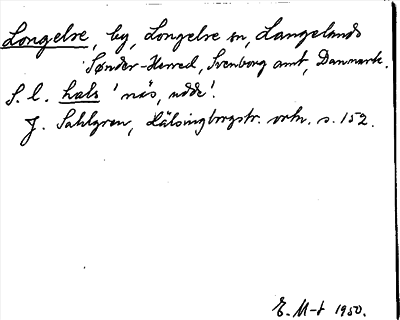 Longelse, by, Longelse sn, Langelands
Sønder-Herred, Svenborg amt, Danmark.
S. l. hals 'näs, udde'.
J. Sahlgren, Hälsingborgstr. ortn. s. 152.
E. M-t 1950.